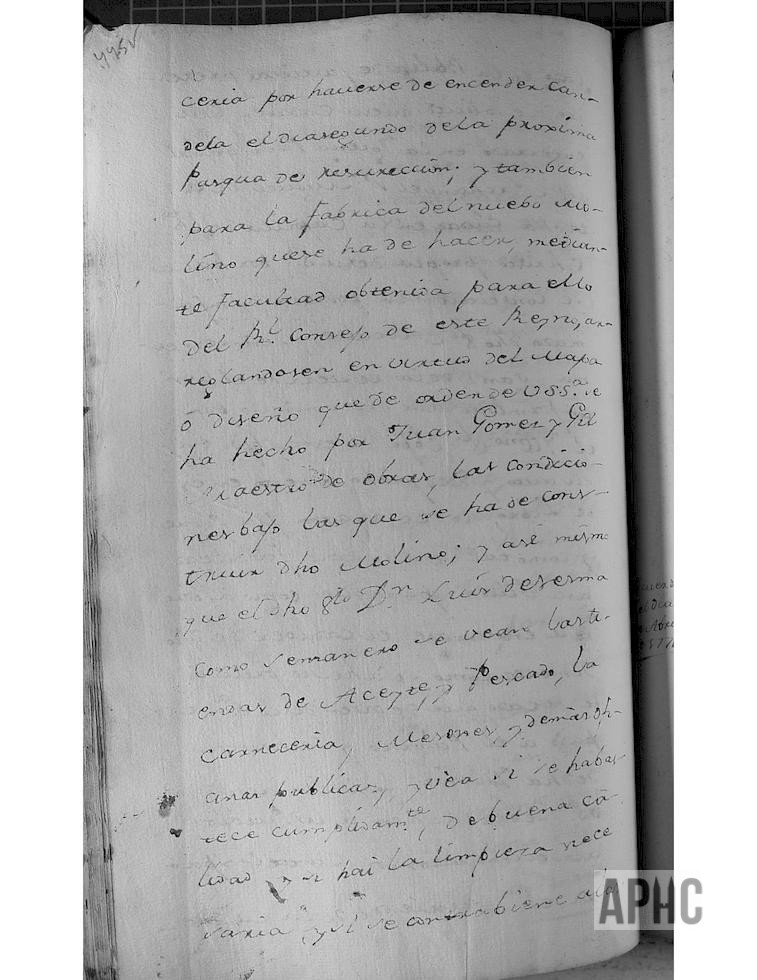 445v
ceria por hauerse de encender can-
dela el dia segundo de la proxima
Pasqua de resureccion; y tambien
para la fabrica del nuebo Mo-
lino que se ha de hacer, median-
te facultad obtenida para ello
del Rl. Consejo de este Reyno, ar-
reglandosen en virtud del Mapa
ô diseño que de orden de VSS.a se
ha hecho por Juan Gomez y Gil
Maestro de obras, las condicio-
nes bajo las que se ha de cons-
truir dho Molino; y asi mismo
que el dho Dn Luis de Sesma
como Semanero se vean las ti-
endas de Aceyte, y Pescado, la
carneceria, Mesones, y demas ofi-
cinas publicas, y vea si se habas-
tece cumplidamte, de buena ca-
lidad y si hai la limpieza nece
saria, y si se contrabiene a la
APHC